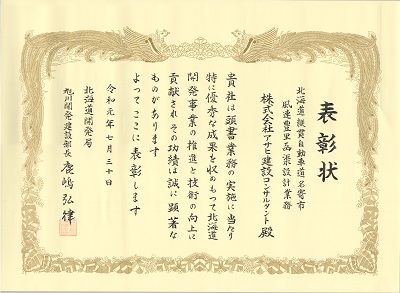 表彰状
北海道縦貫自動車道名寄市
風連豊里函渠設計業務
株式会社アサヒ建設コンサルタント殿
貴社は頭書業務の実施に当たり
特に優秀な成果を収めもって北海道
開発事業の推進と技術の向上に
貢献されその功績は誠に顕著な
ものがあります
よってここに表彰します
令和元年七月三十日
北海道開発局
旭川開発建設部長 鹿嶋弘律